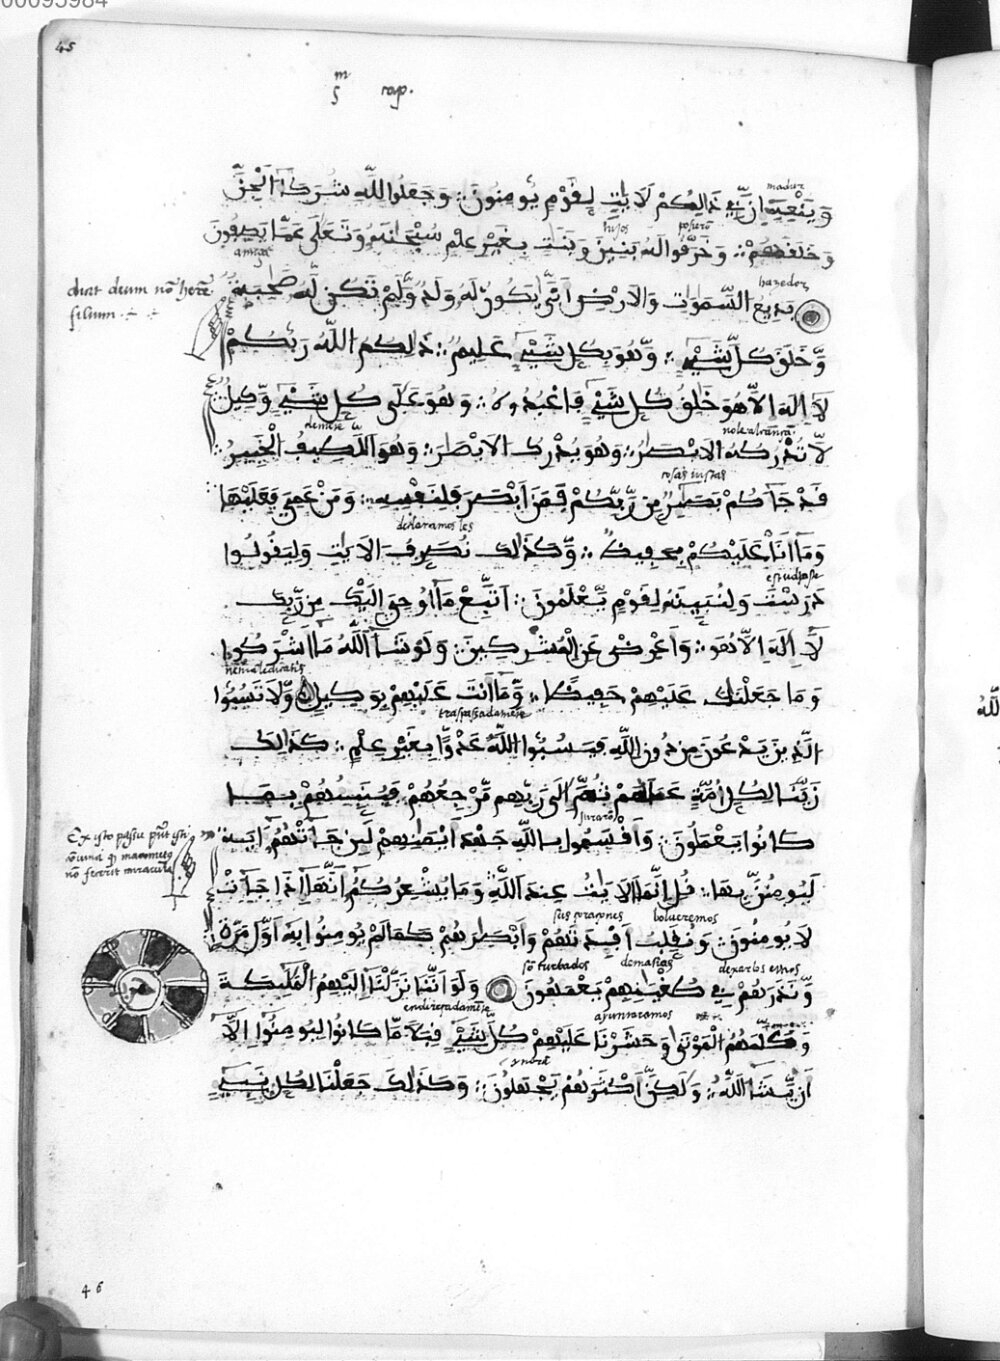 00095984
45
5 cap.
madurez
وَيَنْعِهِ إِنَّ فِي ذَلِكُمْ لَآيَاتٍ لِقَوْمٍ يُومِنُونَ وَجَعَلُوا لِلَّهِ شُرَكَاءَ الْجِنَّ
hijos
وَخَلَقَهُمْ وَخَرَّقُوا لَهُ بَنِينَ وَبَنَاتٍ بِغَيْرِ عِلْمٍ سُبْحَانَهُ وَتَعَالَى عَمَّا يَصِفُونَ
amiga hazedor
dicit deum nō here
filium
بَدِيعُ السَّمَاوَاتِ وَالْأَرْضِ أَنَّى يَكُونُ لَهُ وَلَدٌ وَلَمْ تَكُن لَّهُ صَاحِبَةٌ
وَخَلَقَ كُلَّ شَيْءٍ وَهُوَ بِكُلِّ شَيْءٍ عَلِيمٌ ذَلِكُمُ اللَّهُ رَبُّكُمْ
لَا إِلَهَ إِلَّا هُوَ خَالِقُ كُلِّ شَيْءٍ فَاعْبُدُوهُ وَهُوَ عَلَى كُلِّ شَيْءٍ وَكِيلٌ
لَّا تُدْرِكُهُ الْأَبْصَارُ وَهُوَ يُدْرِكُ الْأَبْصَارَ وَهُوَ اللَّطِيفُ الْخَبِيرُ
cosas iustas
قَدْ جَاءَكُم بَصَائِرُ مِن رَّبِّكُمْ فَمَنْ أَبْصَرَ فَلِنَفْسِهِ وَمَنْ عَمِيَ فَعَلَيْهَا
declaramos les
وَمَا أَنَا عَلَيْكُم بِحَفِيظٍ وَكَذَلِكَ نُصَرِّفُ الْآيَاتِ وَلِيَقُولُوا
estudiaste
دَرَسْتَ وَلِنُبَيِّنَهُ لِقَوْمٍ يَعْلَمُونَ اتَّبِعْ مَا أُوحِيَ إِلَيْكَ مِن رَّبِّكَ
لَا إِلَهَ إِلَّا هُوَ وَأَعْرِضْ عَنِ الْمُشْرِكِينَ وَلَوْ شَاءَ اللَّهُ مَا أَشْرَكُوا
ne maledicatis
وَمَا جَعَلْنَاكَ عَلَيْهِمْ حَفِيظًا وَمَا أَنتَ عَلَيْهِم بِوَكِيلٍ وَلَا تَسُبُّوا
traspassadamēte
الَّذِينَ يَدْعُونَ مِن دُونِ اللَّهِ فَيَسُبُّوا اللَّهَ عَدْوًا بِغَيْرِ عِلْمٍ كَذَلِكَ
زَيَّنَّا لِكُلِّ أُمَّةٍ عَمَلَهُمْ ثُمَّ إِلَى رَبِّهِم مَّرْجِعُهُمْ فَيُنَبِّئُهُم بِمَا
juraron
كَانُوا يَعْمَلُونَ وَأَقْسَمُوا بِاللَّهِ جَهْدَ أَيْمَانِهِمْ لَئِن جَاءَتْهُمْ آيَةٌ
Ex isto passu
لَيُومِنُنَّ بِهَا قُلْ إِنَّمَا الْآيَاتُ عِندَ اللَّهِ وَمَا يُشْعِرُكُمْ أَنَّهَا إِذَا جَاءَتْ
sus coraçones bolueremos
لَا يُومِنُونَ وَنُقَلِّبُ أَفْئِدَتَهُمْ وَأَبْصَارَهُمْ كَمَا لَمْ يُومِنُوا بِهِ أَوَّلَ مَرَّةٍ
sō turbados demasias dexarlos emos
وَنَذَرُهُمْ فِي طُغْيَانِهِمْ يَعْمَهُونَ وَلَوْ أَنَّنَا نَزَّلْنَا إِلَيْهِمُ الْمَلَائِكَةَ
ayuntaramos
وَكَلَّمَهُمُ الْمَوْتَى وَحَشَرْنَا عَلَيْهِمْ كُلَّ شَيْءٍ قِبَلًا مَّا كَانُوا لِيُومِنُوا إِلَّا
أَن يَشَاءَ اللَّهُ وَلَكِنَّ أَكْثَرَهُمْ يَجْهَلُونَ وَكَذَلِكَ جَعَلْنَا لِكُلِّ نَبِيٍّ
46